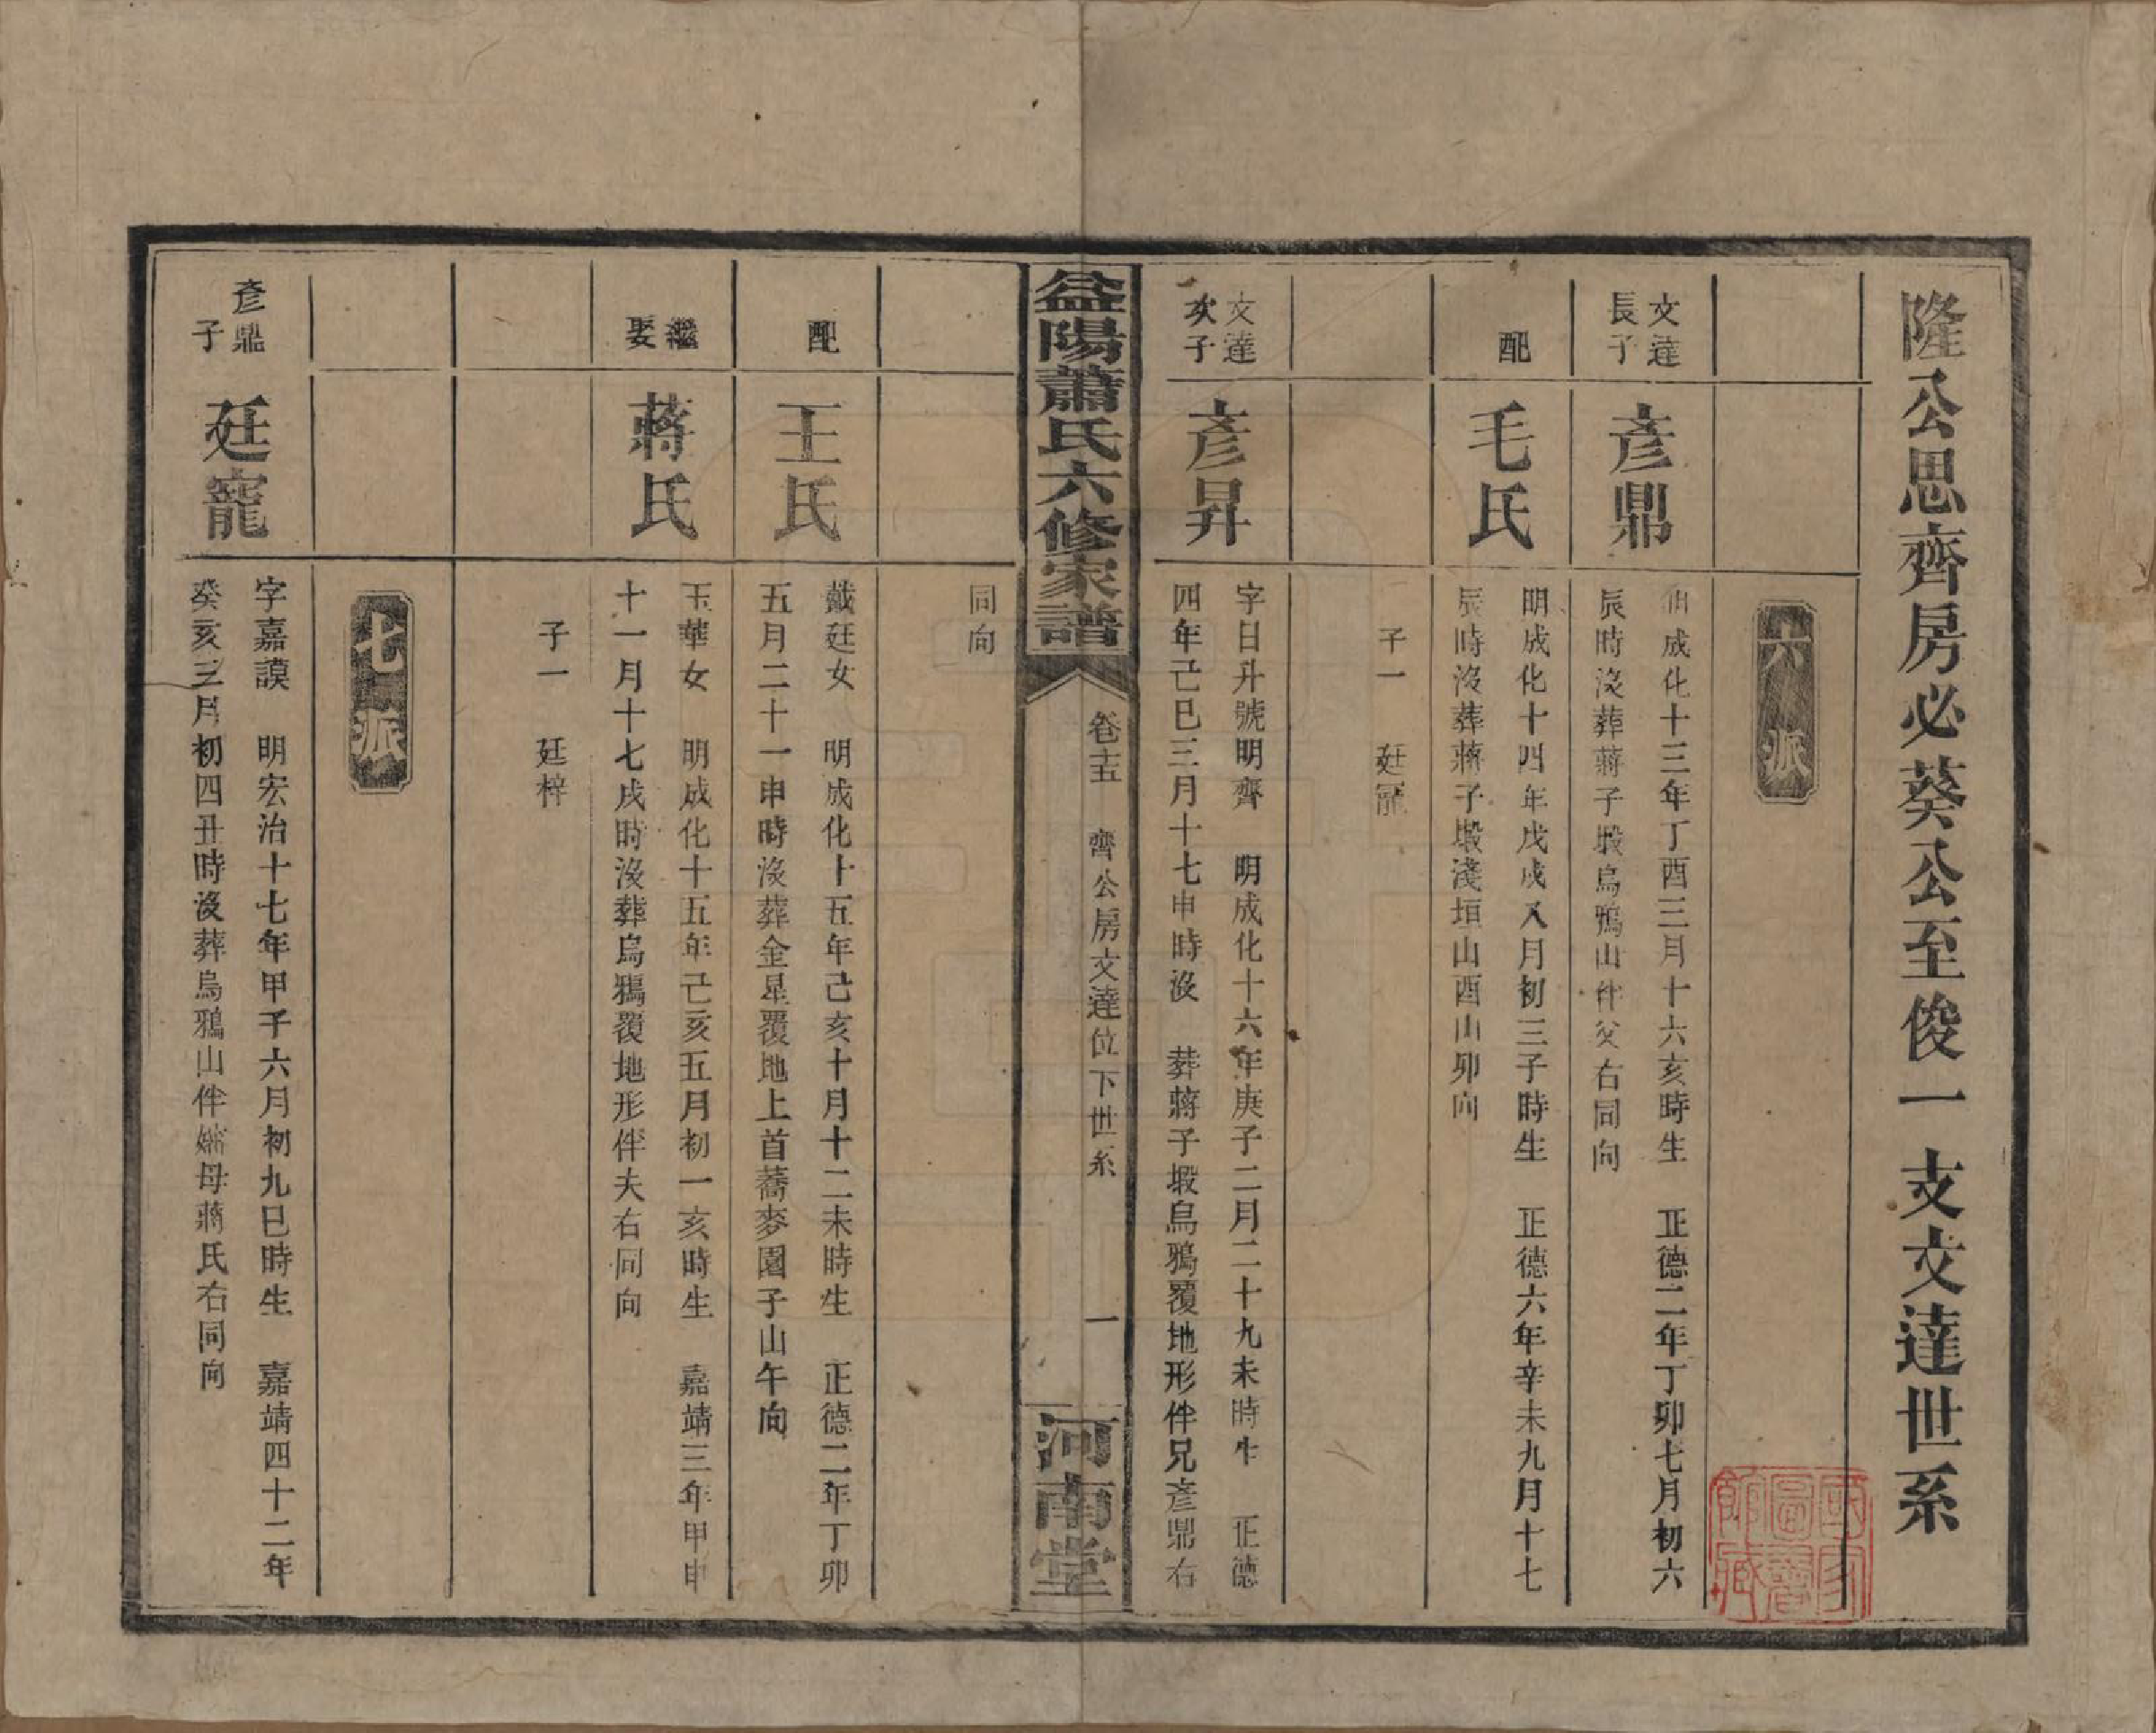 隆公思齊房必葵公至俊一支文達世系
六派
文達
長子
彥鼎
明成化十三年丁酉三月十六亥時生　正德二年丁卯七月初六
辰時沒葬蔣子塅烏鴉山伴父右同向
配
毛氏
明成化十四年戊戌八月初三子時生　正德六年辛未九月十七
辰時沒葬蔣子塅淺垣山酉山卯向
子一　廷寵
文達
次子
彥昇
字日升號明齊　明成化十六年庚子二月二十九未時生　正德
四年己巳三月十七申時沒　葬蔣子塅烏鴉覆地形伴兄彥鼎右
益陽蕭氏六修家譜
卷十五　齊公房文達位下世系　一
河南堂
同向
配
王氏
戴廷女　明成化十五年己亥十月十二未時生　正德二年丁卯
五月二十一申時沒葬金星覆地上首蕎麥園子山午向
繼
娶
蔣氏
玉華女　明成化十五年己亥五月初一亥時生　嘉靖三年甲申
十一月十七戌時沒葬烏鴉覆地形伴夫右同向
子一　廷梓
七派
彥鼎
子
廷寵
字嘉謨　明宏治十七年甲子六月初九巳時生　嘉靖四十二年
癸亥三月初四丑時沒葬烏鴉山伴嬸母蔣氏右同向
國家
圖書
館藏